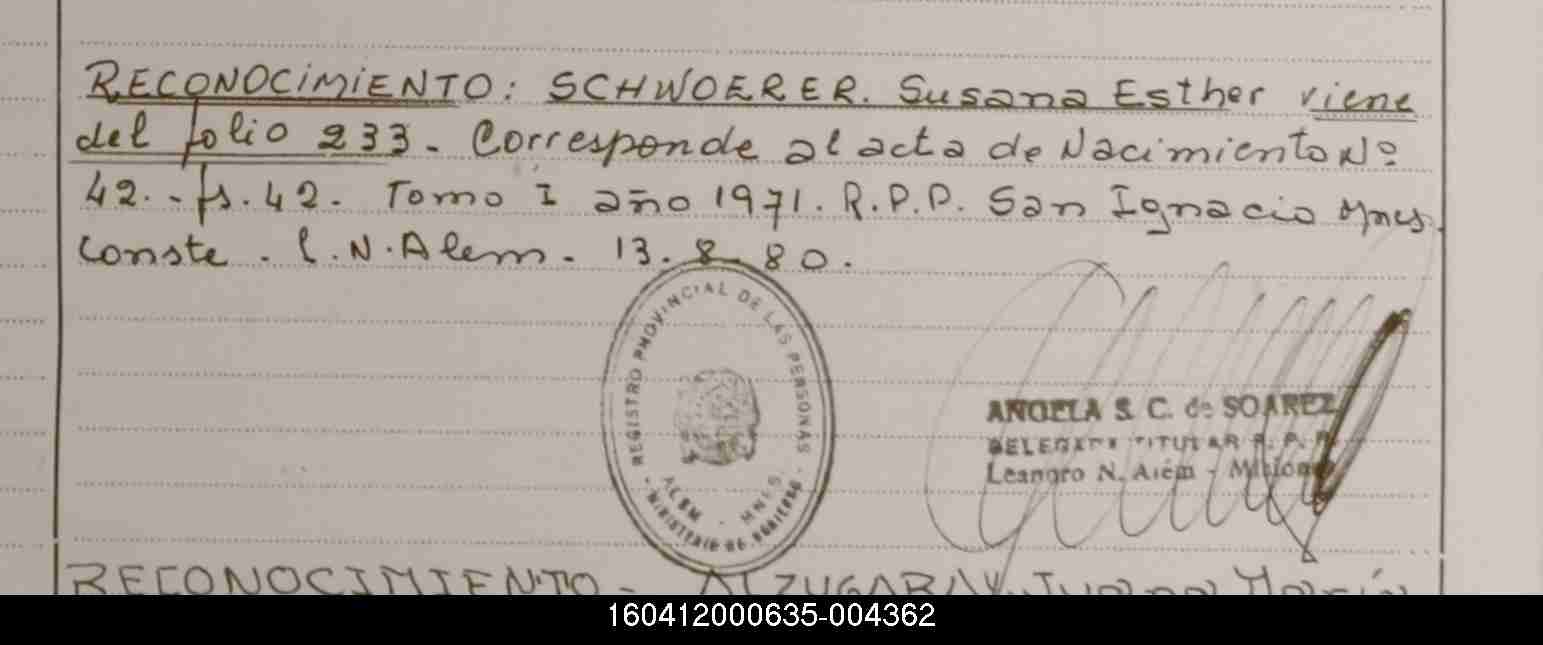 RECONOCIMIENTO: SCHWOERER. Susana Esther viene
del folio 233. Corresponde al acta de Nacimiento Nº
42.- fs. 42. Tomo I año 1971. R.P.P. San Ignacio Mnes.
Conste. L.N. Alem. 13.8.80.
REGISTRO PROVINCIAL DE LAS PERSONAS
ALEM - MNES
- MINISTERIO DE GOBIERNO -
ANGELA S. C. de SOAREZ
DELEGADA TITULAR R. P. P.
Leandro N. Além - Misiones
RECONOCIMIENTO - ALZUGARAY, Juana María
160412000635-004362